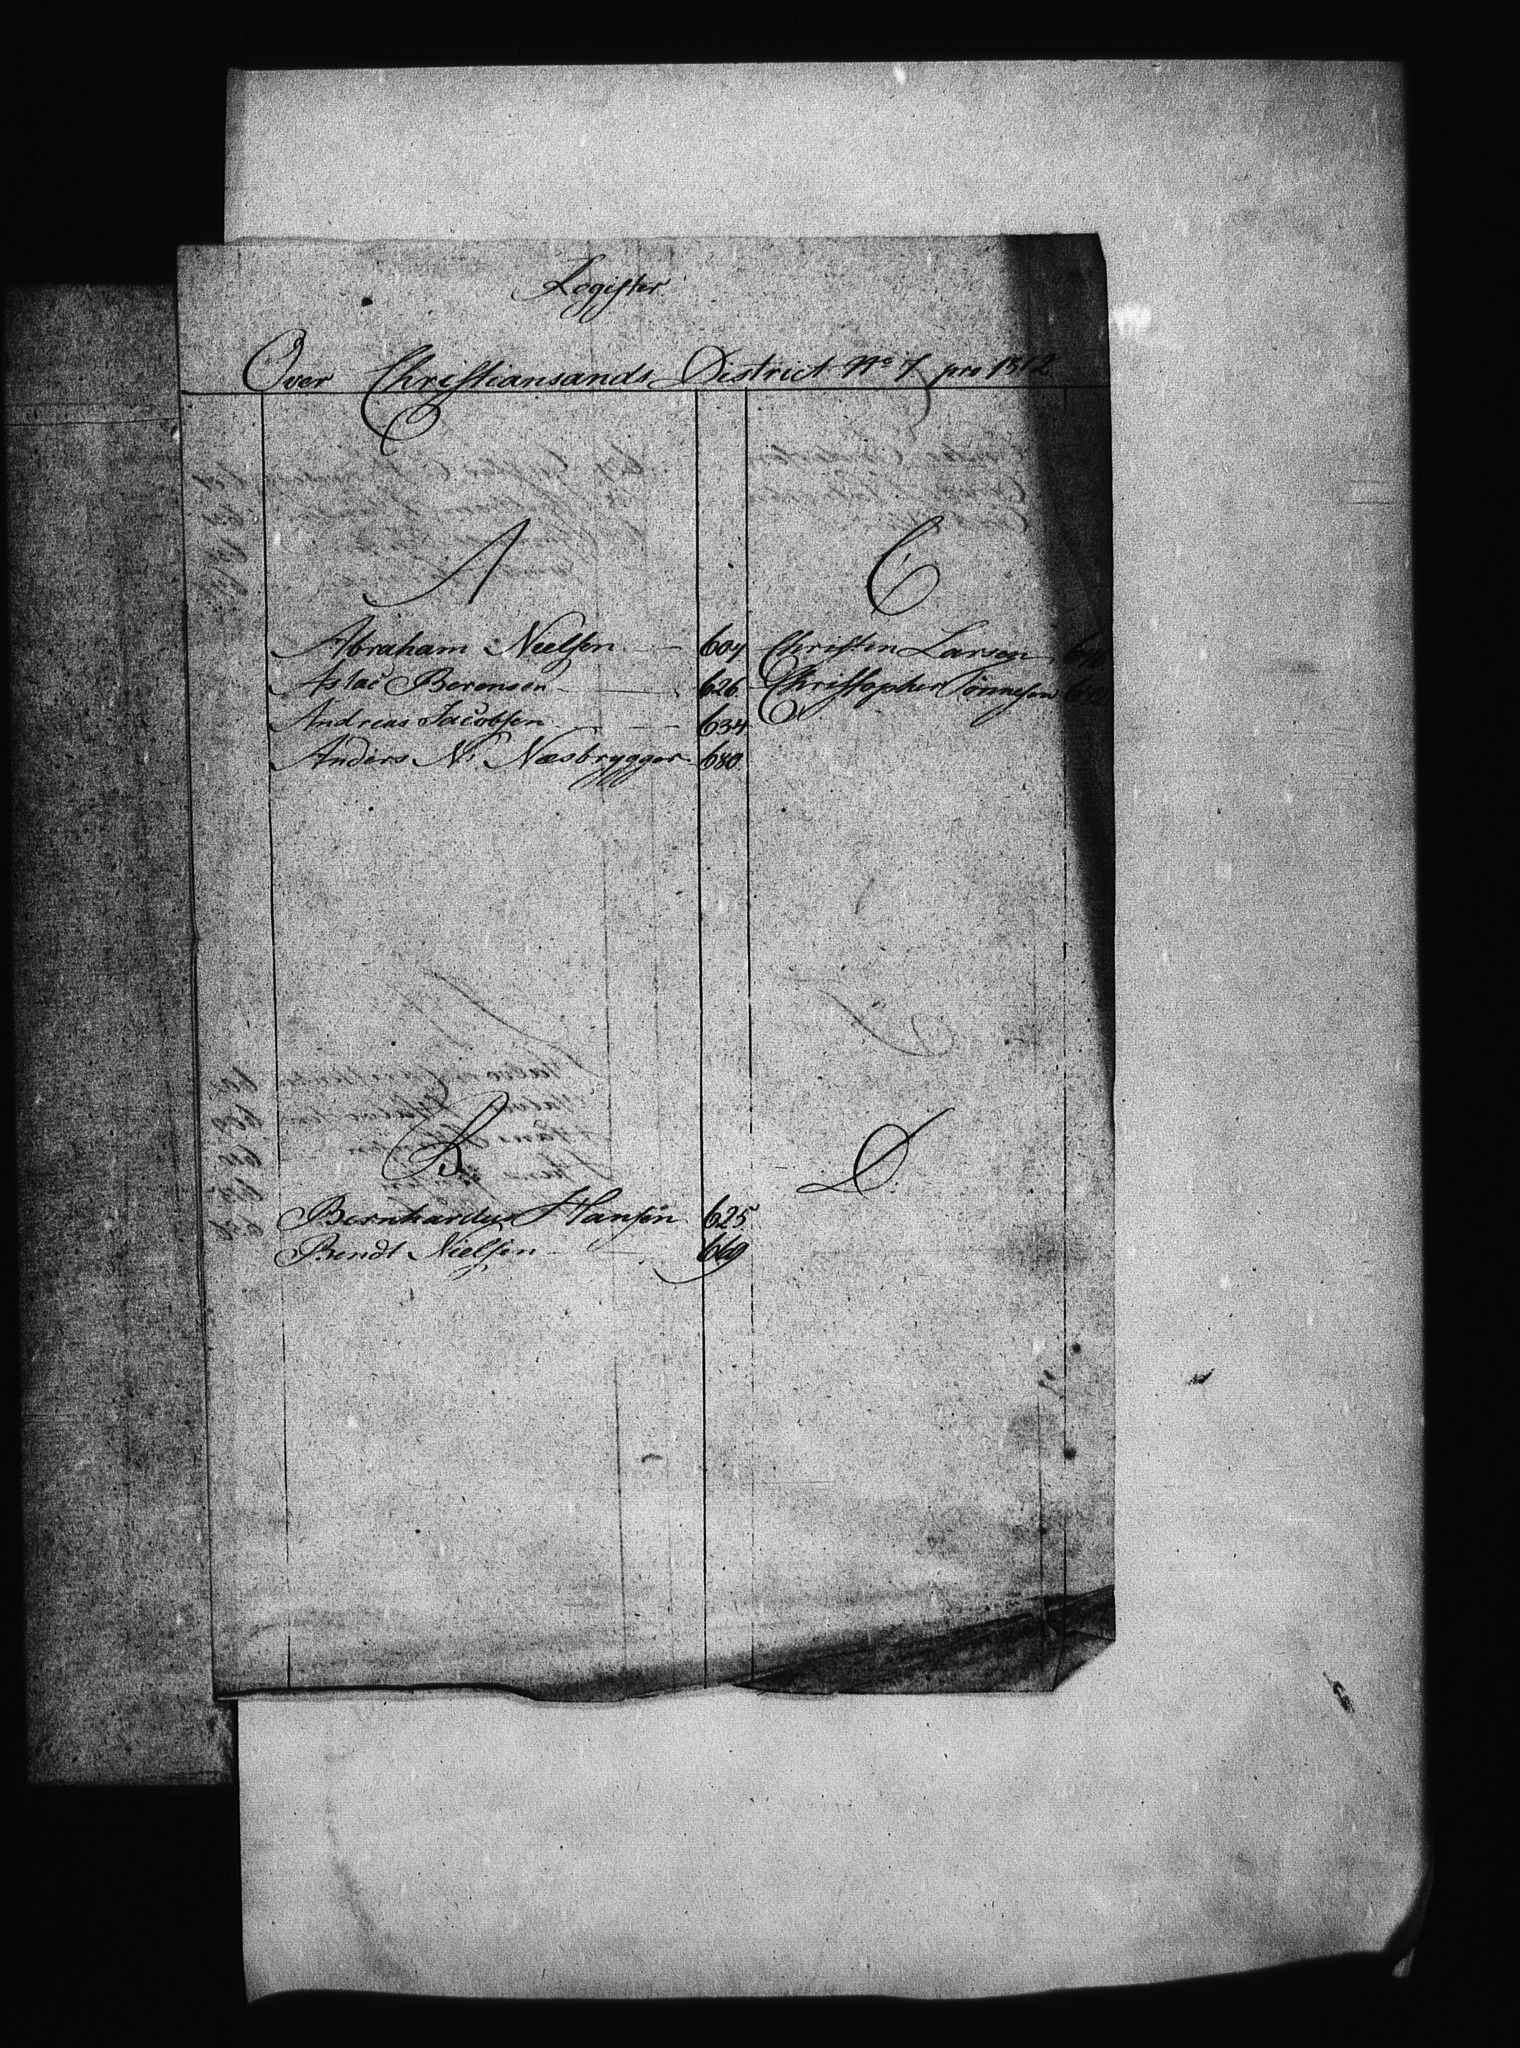 Register
Over Christiansands District No 7 pro 1812
A
Abraham Nielsen 604
Aslac Berensen 626
Andreas Jacobsen 634
Anders N. Næsbrygger 680
B
Bernhardus Hansen 625
Bendt Nielsen 669
C
Christen Larsen
Christopher Tönnesen
D